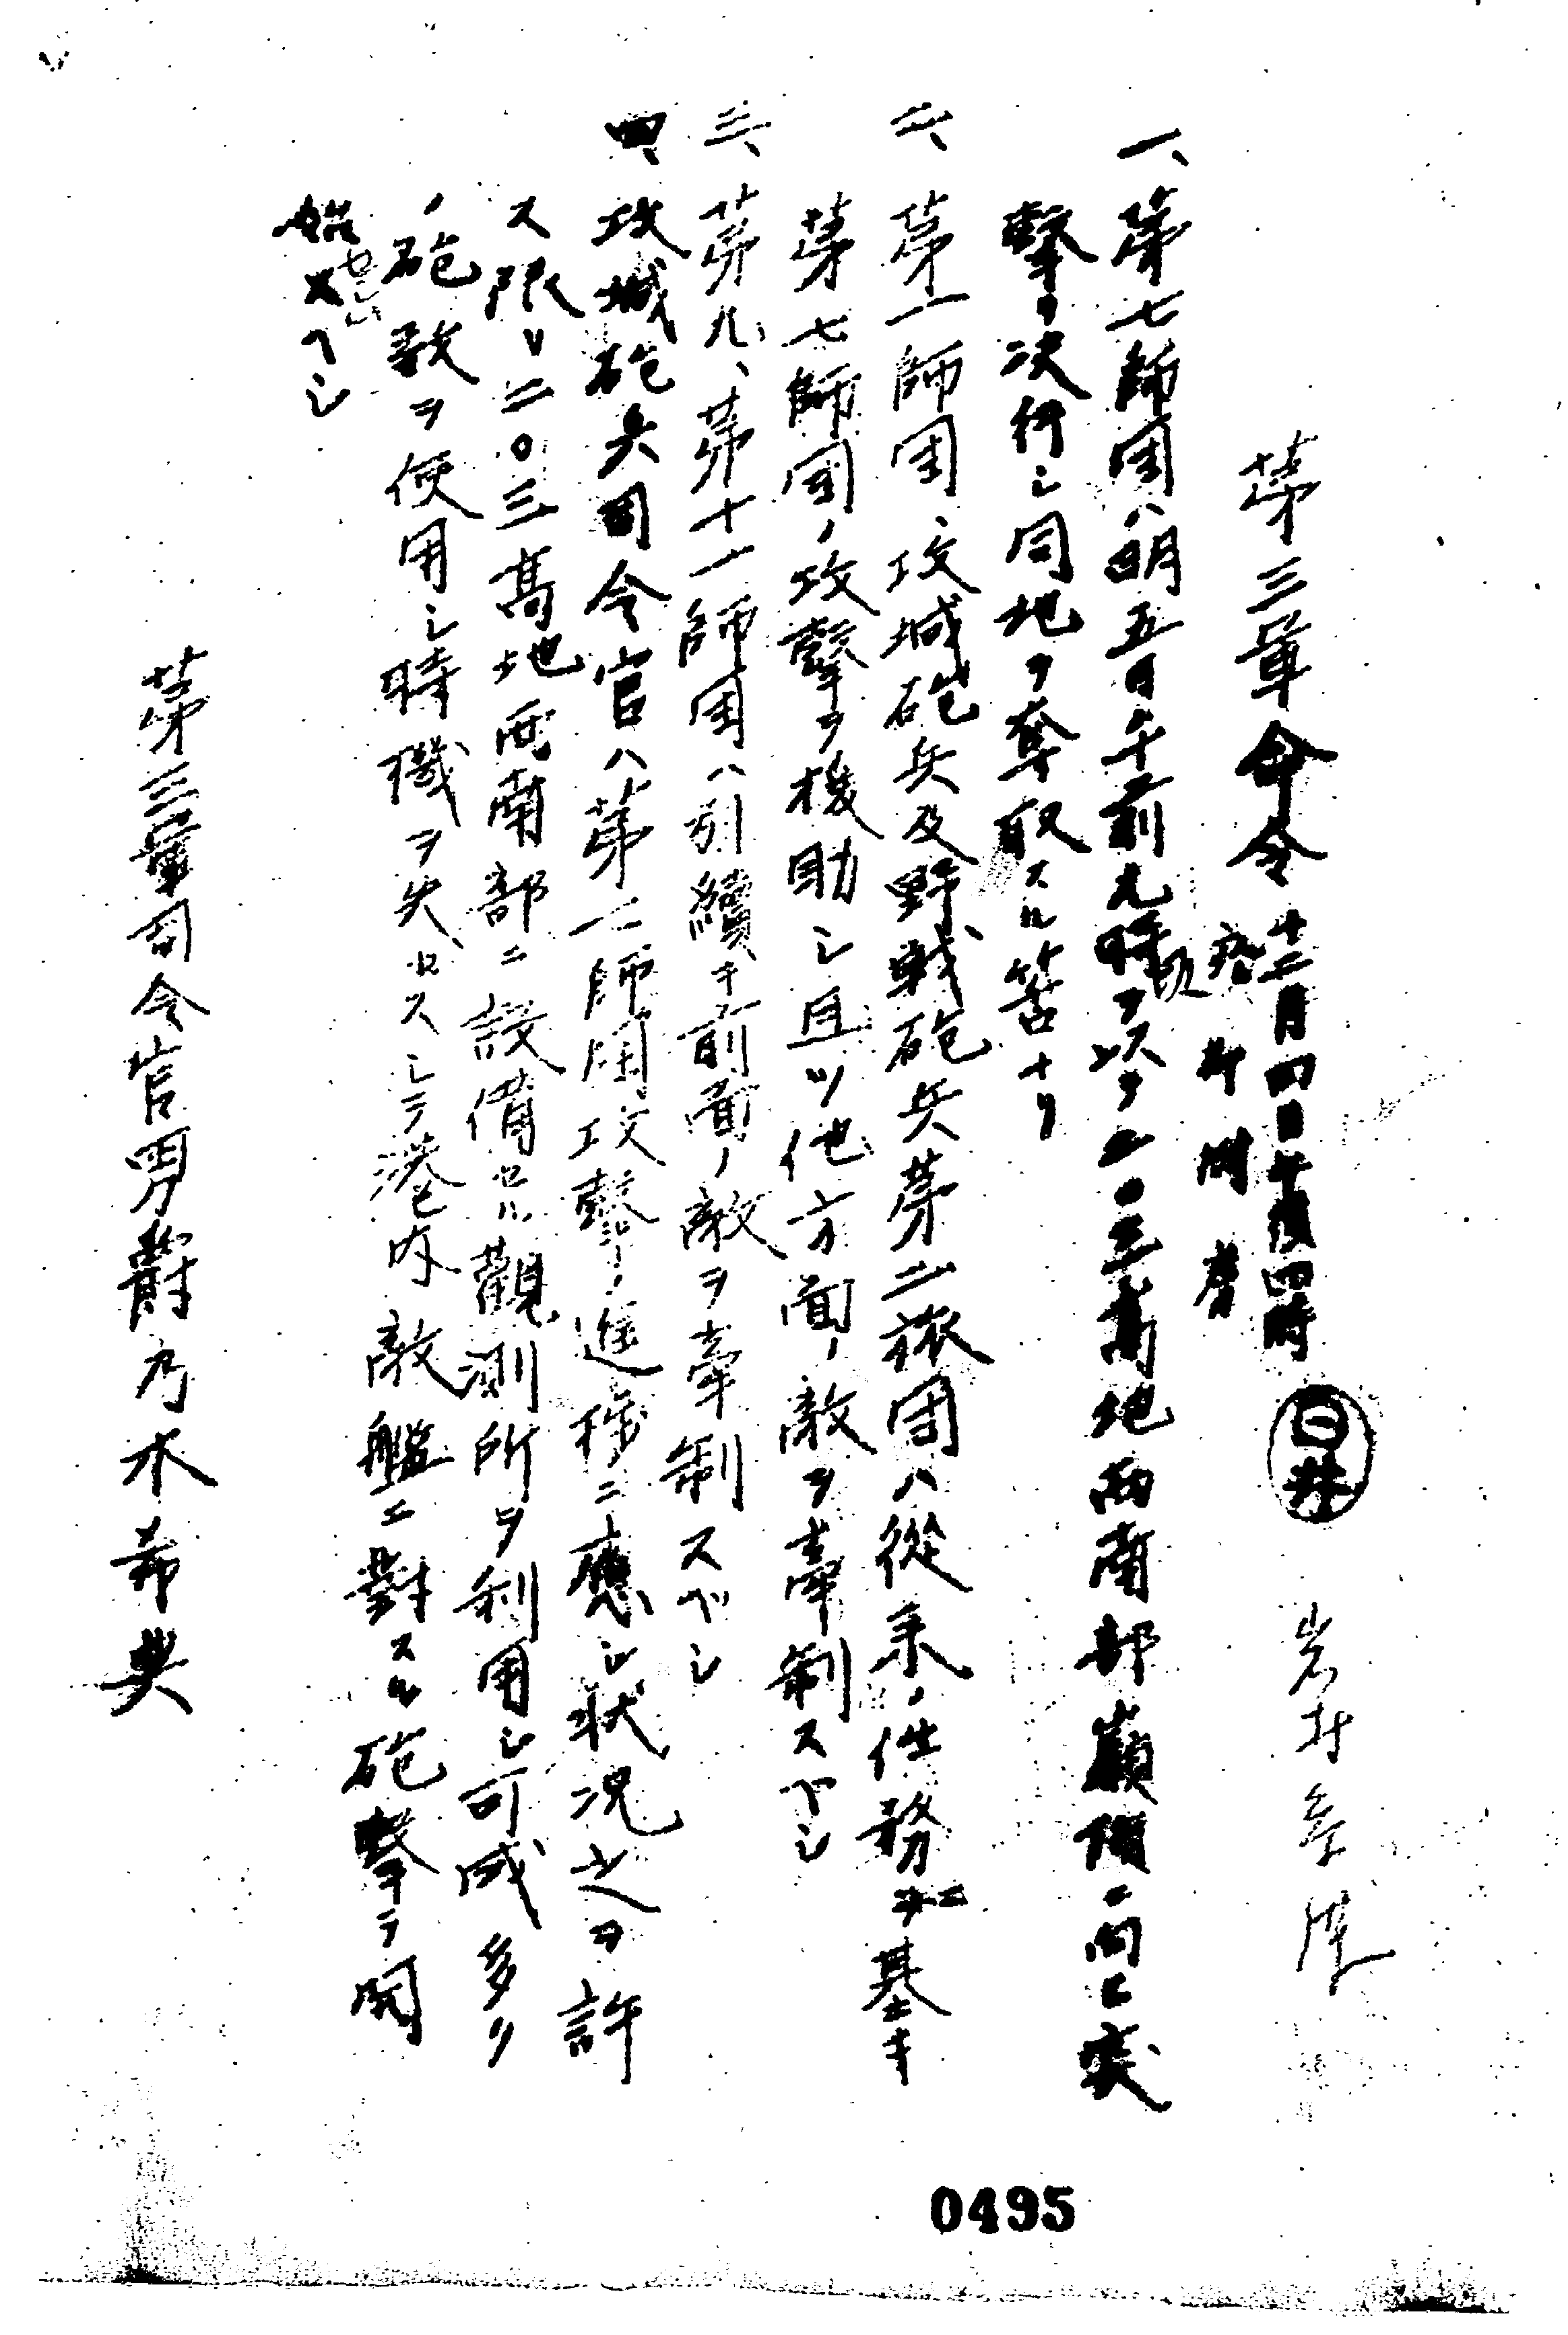 第三軍命令 十二月四日午後四時
於柳樹房
臼井
一、第七師團ハ明五日午前九時ヲ以テ二〇三高地西南部巓頂ニ向ヒ突
撃ヲ決行シ同地ヲ奪取スル筈ナリ
二、第一師団、攻城砲兵及野戦砲兵第二旅団ハ從来ノ任務ニ基キ
第七師団ノ攻撃ヲ援助シ且ツ他方面ノ敵ヲ牽制スヘシ
三、第九、第十一師團ハ引續キ前面ノ敵ヲ牽制スヘシ
四、攻城砲兵司令官ハ第一師團攻撃ノ進捗ニ應シ状况之ヲ許
ス限リ二〇三高地西南部ニ設備セル觀測所ヲ利用シ可成多リ
ノ砲数ヲ使用シ時機ヲ失セスシテ港内敵艦ニ對スル砲撃ヲ開
始セシムヘシ
第三軍司令官男爵乃木希典
0495